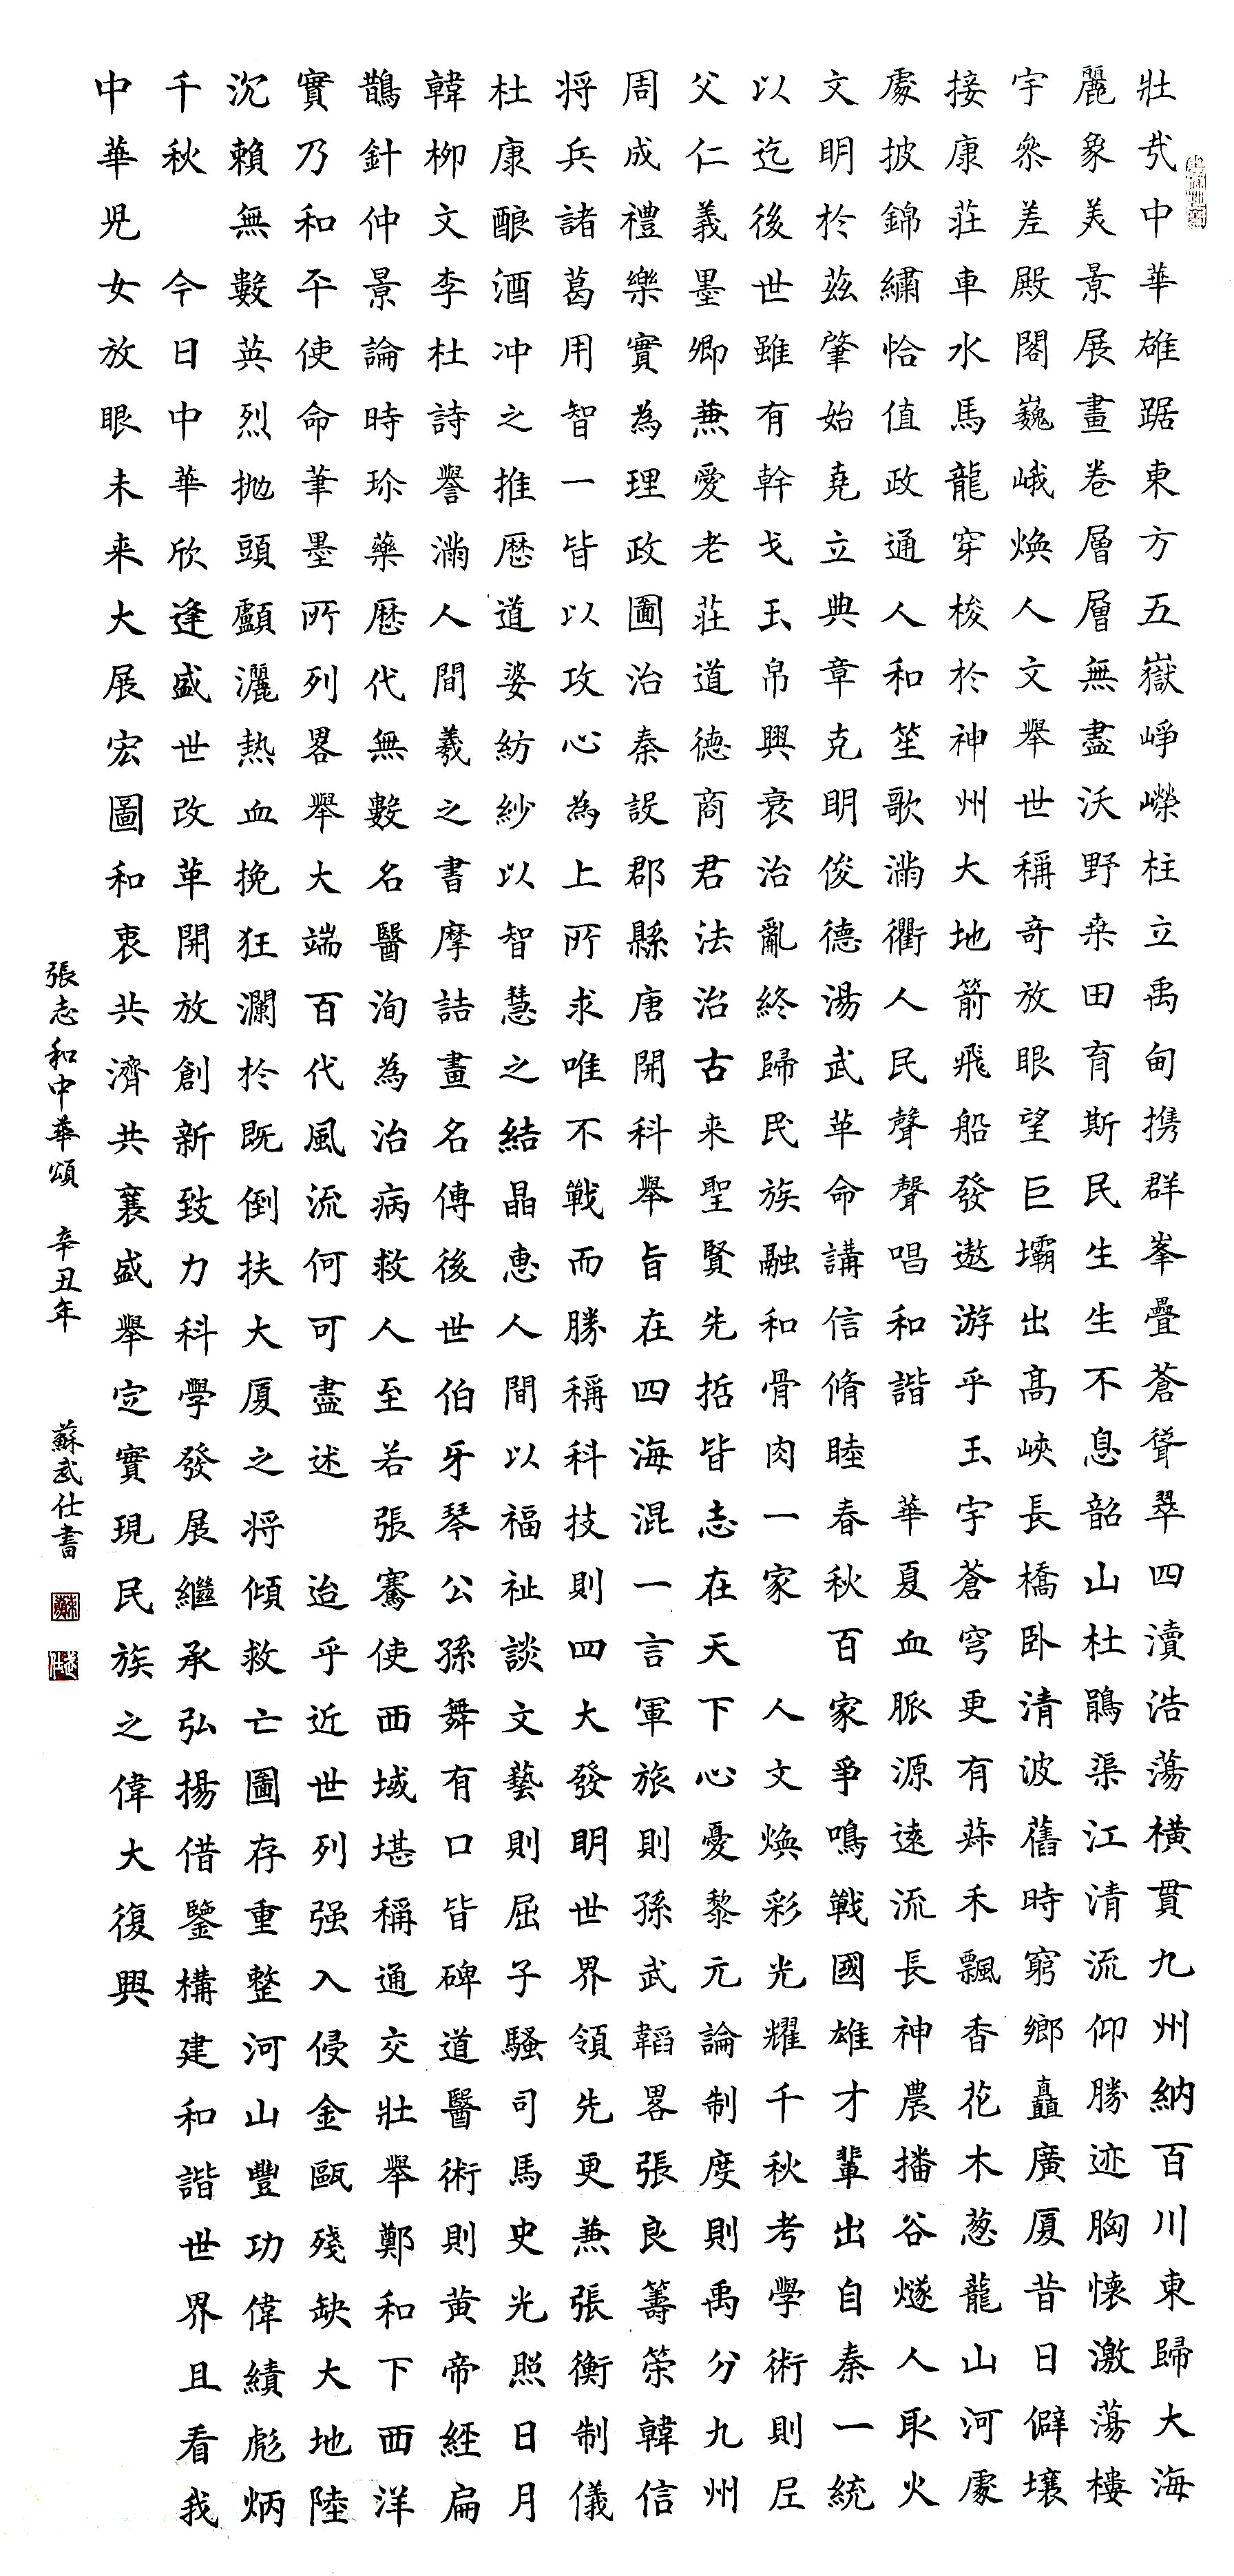 壯哉中華雄踞東方五嶽崢嶸柱立禹甸携群峯疊蒼聳翠四瀆浩蕩橫貫九州納百川東歸大海
麗象美景展畫卷層層無盡沃野桒田育斯民生生不息韶山杜鵑渠江清流仰勝迹胸懷激蕩樓
宇叅差殿閣巍峨煥人文舉世稱奇放眼望巨壩出高峽長橋卧清波舊時窮鄉矗廣厦昔日僻壤
接康莊車水馬龍穿梭於神州大地箭飛船發遨游乎玉宇蒼穹更有蕀禾飄香花木葱蘢山河處
處披錦繡恰值政通人和笙歌滿衢人民聲聲唱和諧 華夏血脈源遠流長神農播谷燧人取火
文明於茲肇始堯立典章克明俊德湯武革命講信脩睦春秋百家爭鳴戰國雄才輩出自秦一統
以迄後世雖有幹戈玉帛興衰治亂終歸民族融和骨肉一家 人文煥彩光耀千秋考學術則尼
父仁義墨卿兼愛老莊道德商君法治古来聖賢先哲皆志在天下心憂黎元論制度則禹分九州
周成禮樂實為理政圖治秦設郡縣唐開科舉旨在四海混一言軍旅則孫武韜畧張良籌策韓信
将兵諸葛用智一皆以攻心為上所求唯不戰而勝稱科技則四大發明世界領先更兼張衡制儀
杜康釀酒冲之推厯道婆紡紗以智慧之結晶惠人間以福祉談文藝則屈子騷司馬史光照日月
韓柳文李杜詩譽滿人間羲之書摩詰畫名傳後世伯牙琴公孫舞有口皆碑道醫術則黃帝經扁
鵲針仲景論時珍藥厯代無數名醫洵為治病救人至若張騫使西域堪稱通交壯舉鄭和下西洋
實乃和平使命筆墨所列畧舉大端百代風流何可盡述 迨乎近世列强入侵金甌殘缺大地陸
沉賴無數英烈抛頭顱灑熱血挽狂瀾於既倒扶大厦之将傾救亡圖存重整河山豐功偉績彪炳
千秋 今日中華欣逢盛世改革開放創新致力科學發展繼承弘揚借鑒構建和諧世界且看我
中華兒女放眼未来大展宏圖和衷共濟共襄盛舉定實現民族之偉大復興
張志和中華頌 辛丑年 蘇武仕書